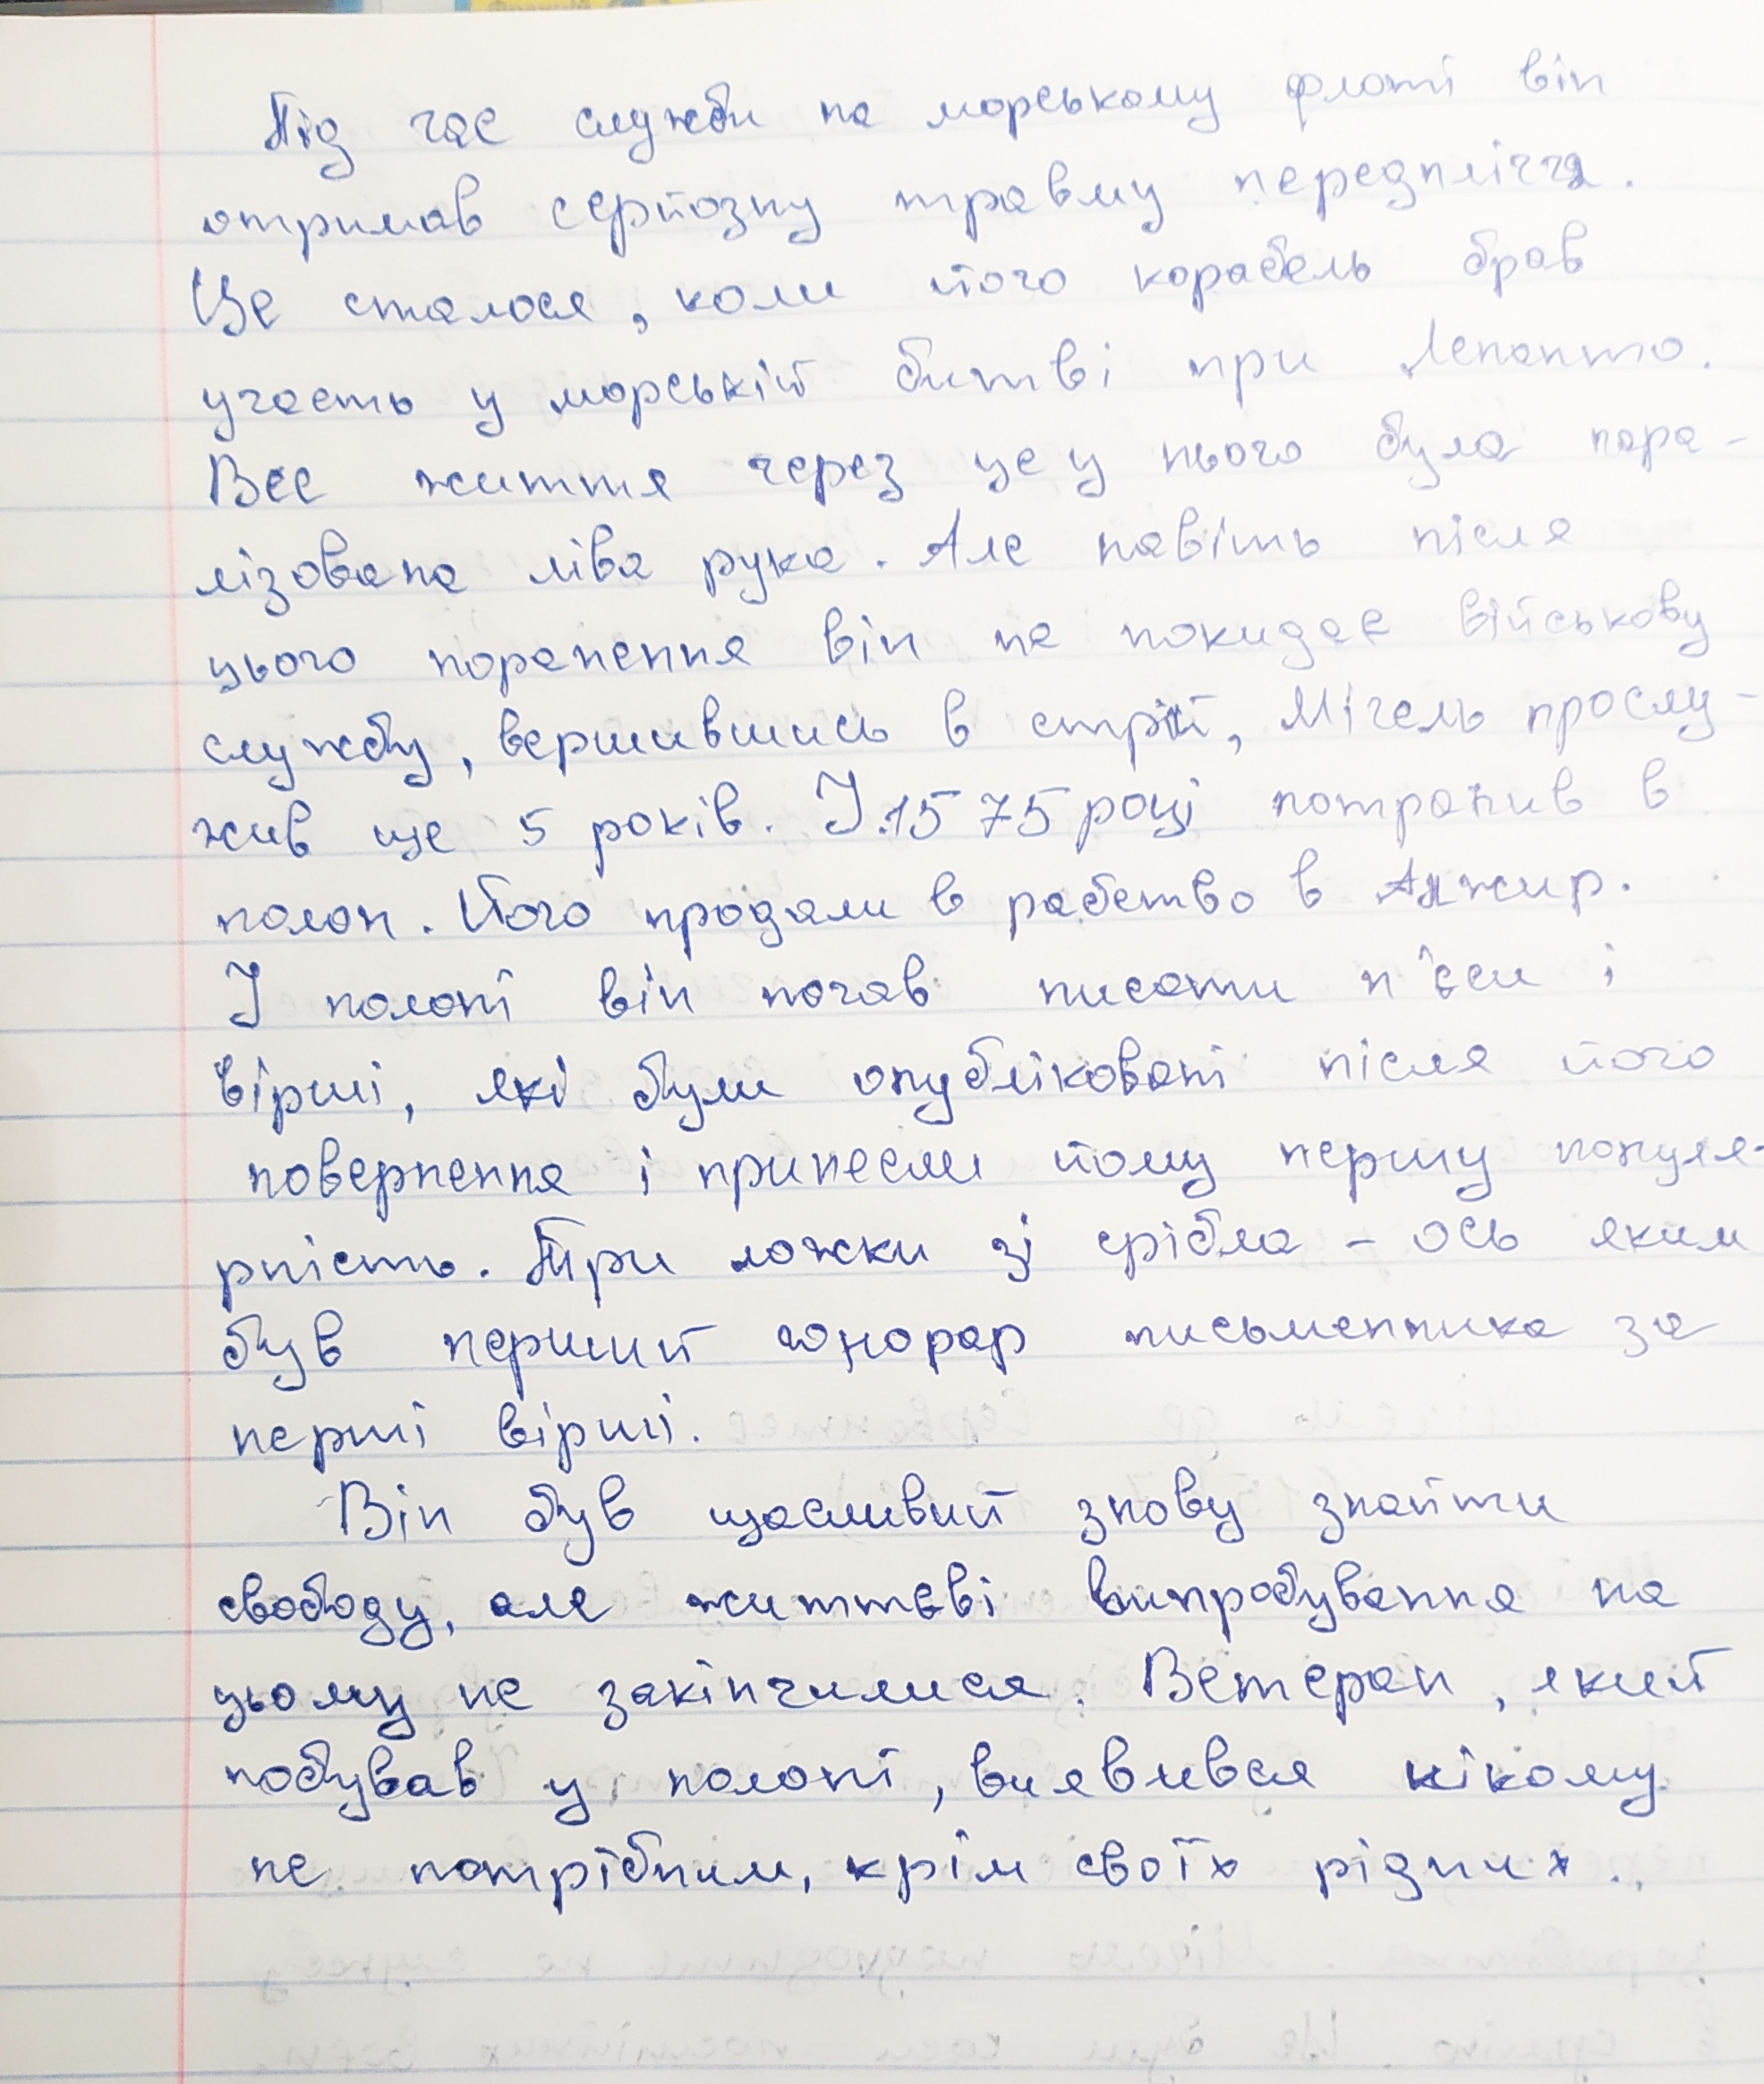 Під час служби на морському флоті він
отримав серйозну травму передпліччя.
Це сталося, коли його корабель брав
участь у морській битві при Лепанто.
Все життя через це у нього була пара-
лізована ліва рука. Але навіть після
цього поранення він не покидає військову
службу, вершившись в стрій, Мігель прослу-
жив ще 5 років. У 1575 році потрапив в
полон. Його продали в рабство в Алжир.
У полоні він почав писати п'єси і
вірші, які були опубліковані після його
повернення і принесли йому першу популя-
рність. Три ложки зі срібла - ось яким
був перший гонорар письменника за
перші вірші.
Він був щасливий знову знайти
свободу, але життєві випробування на
цьому не закінчилися. Ветеран, який
побував у полоні, виявився нікому
не потрібним, крім своїх рідних.